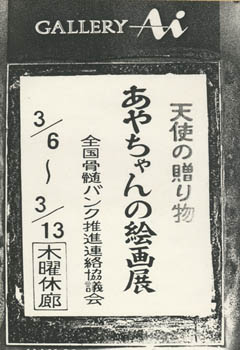 GALLERY Ai
天使の贈り物
あやちゃんの絵画展
全国骨髄バンク推進連絡協議会
3/6～3/13
木曜休廊